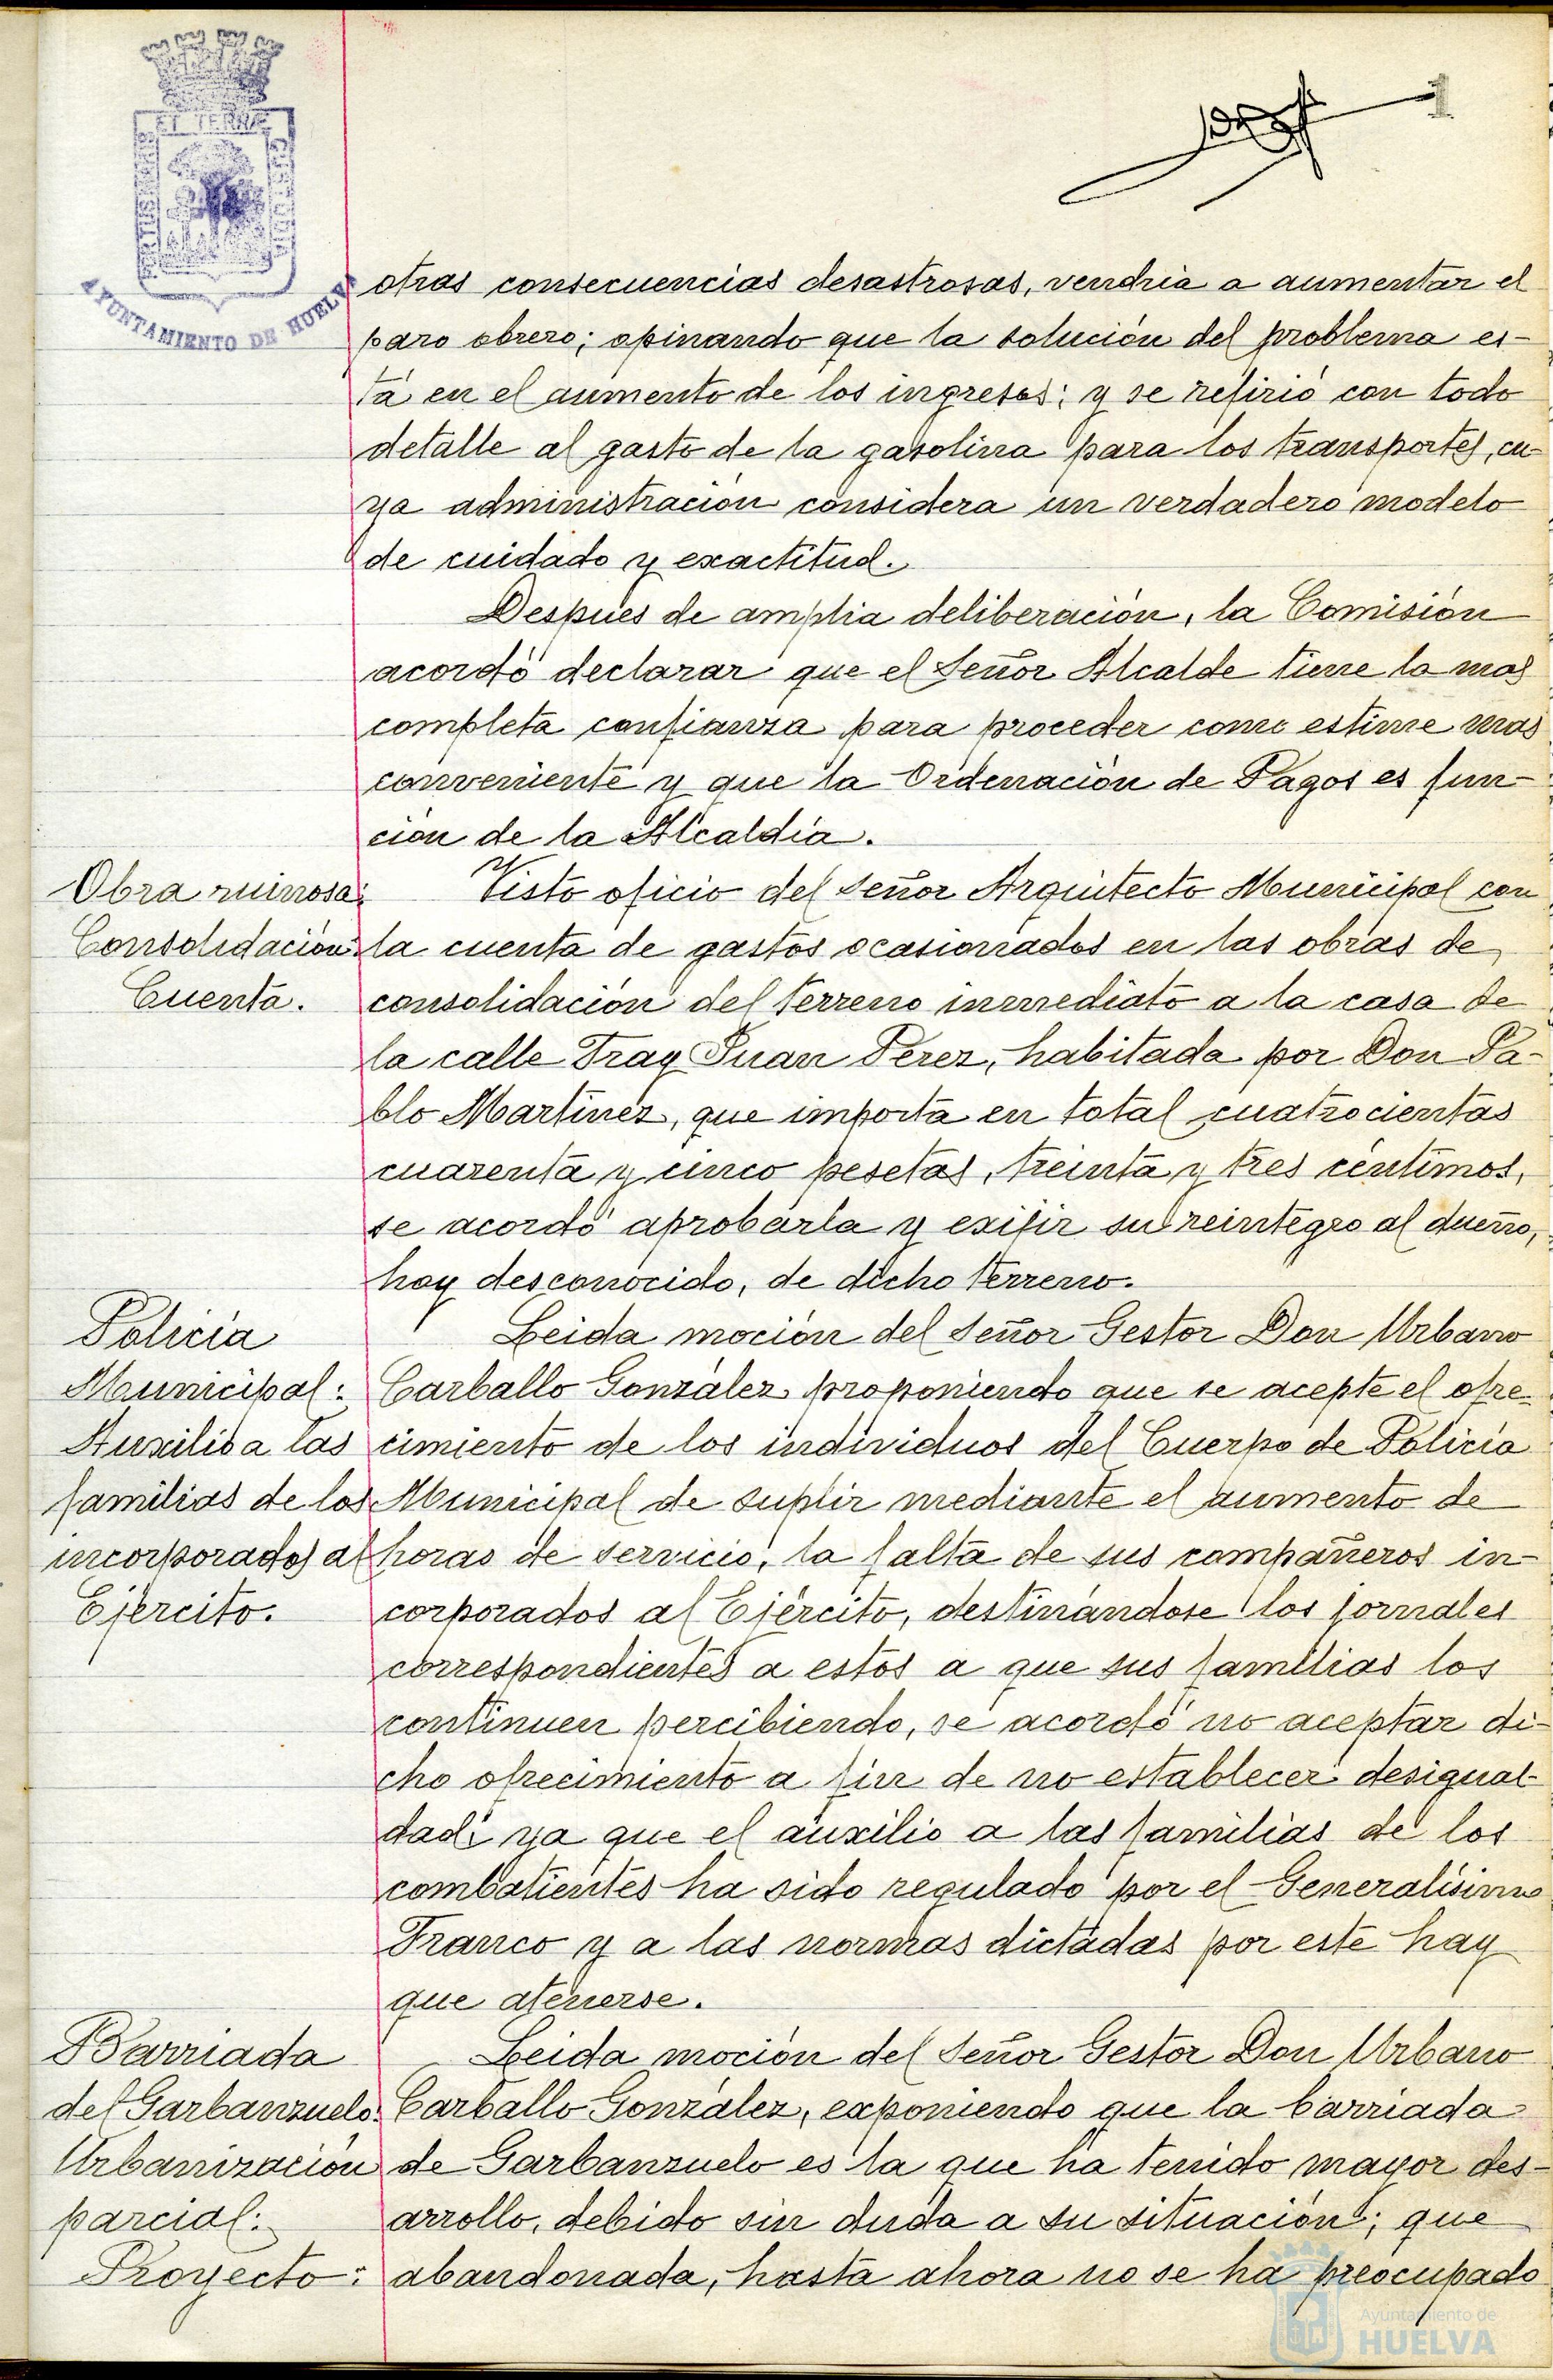 ET TERRÆ
AYUNTAMIENTO DE HUELVA
1
otras consecuencias desastrosas, vendria a aumentar el
paro obrero; opinando que la solución del problema es-
tá en el aumento de los ingresos; y se refirió con todo
detalle al gasto de la gasolina para los transportes, cu-
ya administración considera un verdadero modelo
de cuidado y exactitud.
Despues de amplia deliberación, la Comisión
acordó declarar que el Señor Alcalde tiene la mas
completa confianza para proceder como estime mas
conveniente y que la Ordenación de Pagos es fun-
ción de la Alcaldía.
Obra ruinosa:
Consolidación:
Cuenta.
Visto oficio del Señor Arquitecto Municipal con
la cuenta de gastos ocasionados en las obras de
consolidación del terreno inmediato a la casa de
la calle Fray Juan Pérez, habitada por Don Pa-
blo Martínez, que importa en total cuatrocientas
cuarenta y cinco pesetas, treinta y tres céntimos,
se acordó aprobarla y exigir su reintegro al dueño,
hoy desconocido, de dicho terreno.
Policía
Municipal:
Auxilio a las
familias de los
incorporados al
Ejército.
Leida moción del Señor Gestor Don Urbano
Carballo González proponiendo que se acepte el ofre-
cimiento de los individuos del Cuerpo de Policía
Municipal de suplir mediante el aumento de
horas de servicio, la falta de sus compañeros in-
corporados al Ejército, destinándose los jornales
correspondientes a estos a que sus familias los
continuen percibiendo, se acordó no aceptar di-
cho ofrecimiento a fin de no establecer desigual-
dad; ya que el auxilio a las familias de los
combatientes ha sido regulado por el Generalísimo
Franco y a las normas dictadas por este hay
que atenerse.
Barriada
del Garbanzuelo:
Urbanización
parcial:
Proyecto:
Leida moción del Señor Gestor Don Urbano
Carballo González, exponiendo que la barriada
de Garbanzuelo es la que ha tenido mayor des-
arrollo, debido sin duda a su situación; que
abandonada, hasta ahora no se ha preocupado
Ayuntamiento de
HUELVA